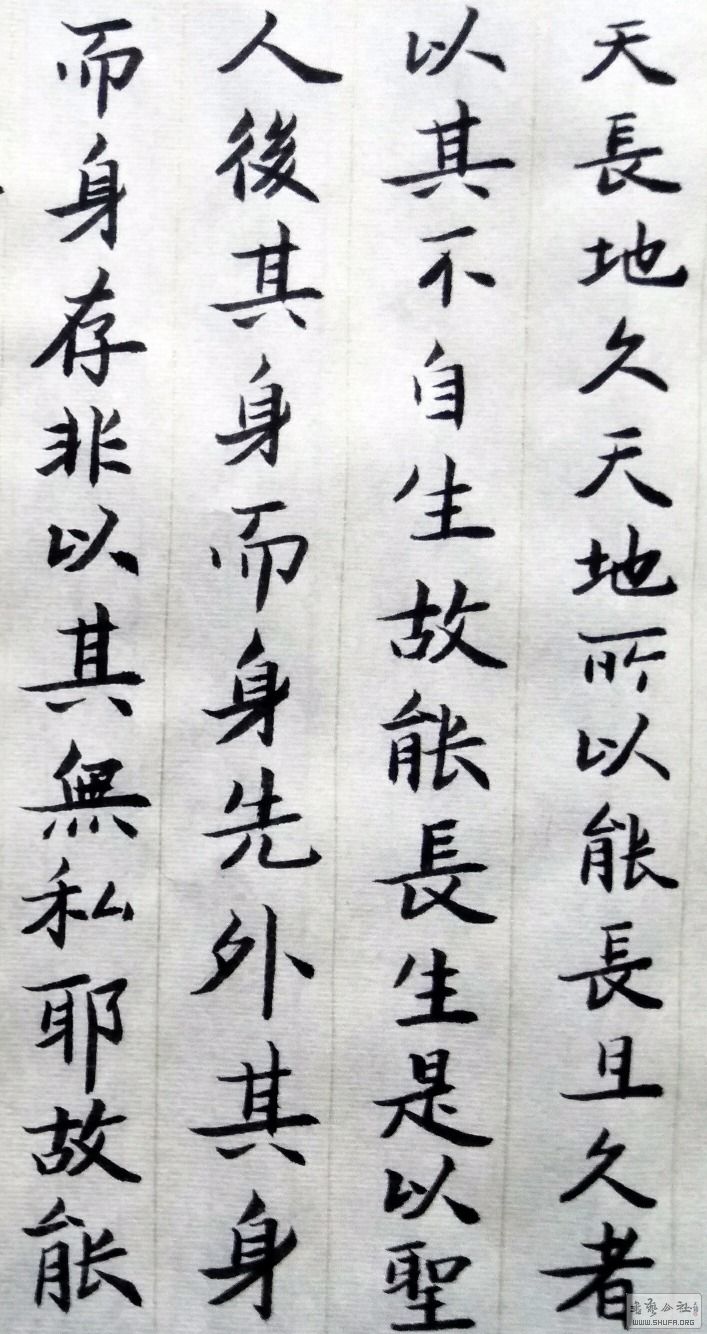 天長地久天地所以能長且久者
以其不自生故能長生是以聖
人後其身而身先外其身
而身存非以其無私耶故能
WWW.SHUFA.ORG